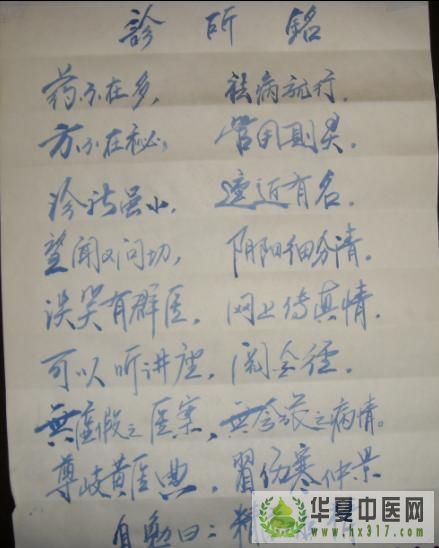 診所銘
药不在多, 祛病就行.
方不在秘, 管用则灵.
诊所虽小, 遠近有名.
望闻又问切, 阴阳细分清.
谈笑有群医, 网上传真情.
可以听讲座, 阅金径.
無虚假之医案, 無夸张之病情。
尊岐黄医典, 習伤寒仲景
自勉曰:
华夏中医网
www.hx317.com